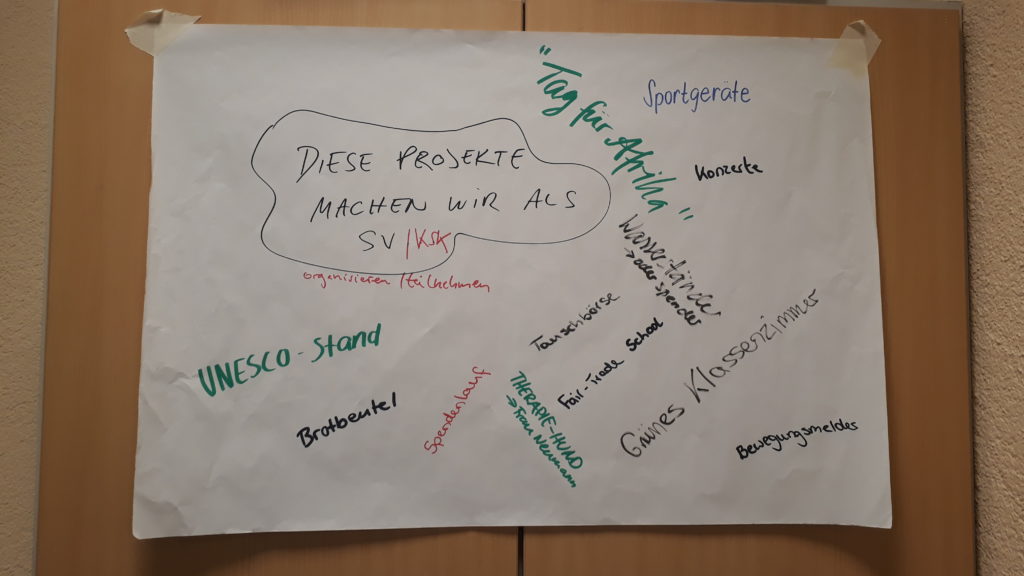 "Tag für Afrika"
Sportgeräte
Konzerte
DIESE PROJEKTE
MACHEN WIR ALS
SV /KSK
organisieren /teilnehmen
→ oder spender
Tauschbörse
Fair-Trade School
UNESCO-Stand
Brotbeutel
Spendenlauf
THERAPIE-HUND
→ Frau Neumann
Grünes Klassenzimmer
Bewegungsmeldes